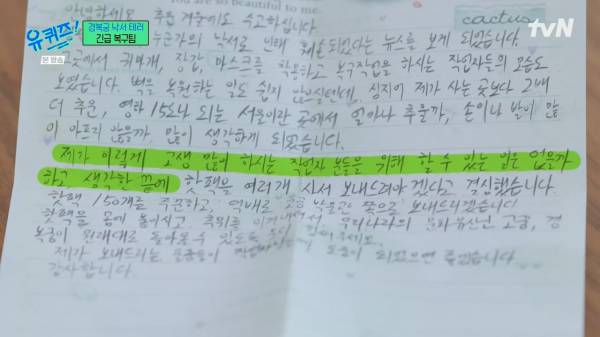 유퀴즈!
본 방송
경복궁 낙서 테러
긴급 복구팀
tvN
so beautiful to me
cactus
안녕하세요 추운 겨울에도 수고하십니다.
누군가의 낙서로 인해 훼손되었다는 뉴스를 보게 되었습니다.
그곳에서 귀마개, 장갑, 마스크를 착용하고 복구작업을 하시는 작업자들의 모습도
보였습니다. 벽을 복원하는 일도 쉽지 않으실텐데, 심지어 제가 사는 곳보다
더 추운, 영하 15도나 되는 서울이란 곳에서 얼마나 추울까, 손이나 발이 많
이 아프지 않을까, 많이 생각하게 되었습니다.
제가 이렇게 고생 많이 하시는 작업자 분들을 위해 할 수 있는 일은 없을까
하고 생각한 끝에 핫팩을 여러개 사서 보내드려야겠다고 결심했습니다.
핫팩 150개를 주문하고, 쪽으로 보내드리겠습니다
핫팩들 몸에 붙이시고, 추위를 이겨내셔서 우리나라의 문화유산인 고궁, 경
복궁이 원래대로 돌아올 수 있도록
제가 보내드리는 도움이 되었으면 좋겠습니다
감사합니다.